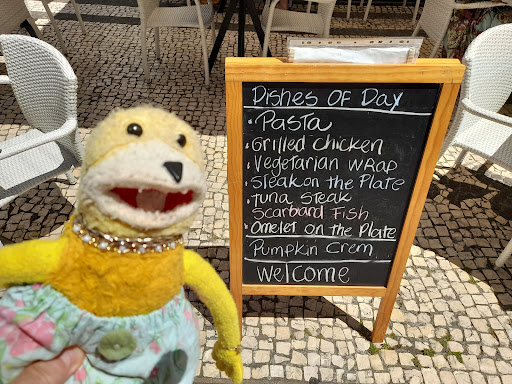 Dishes OF Day
• Pasta
• Grilled Chicken
• Vegetarian WRAP
• Steak on the Plate
• Tuna Steak
Scarband Fish
• Omelet on the Plate
Pumpkin Crem
Welcome